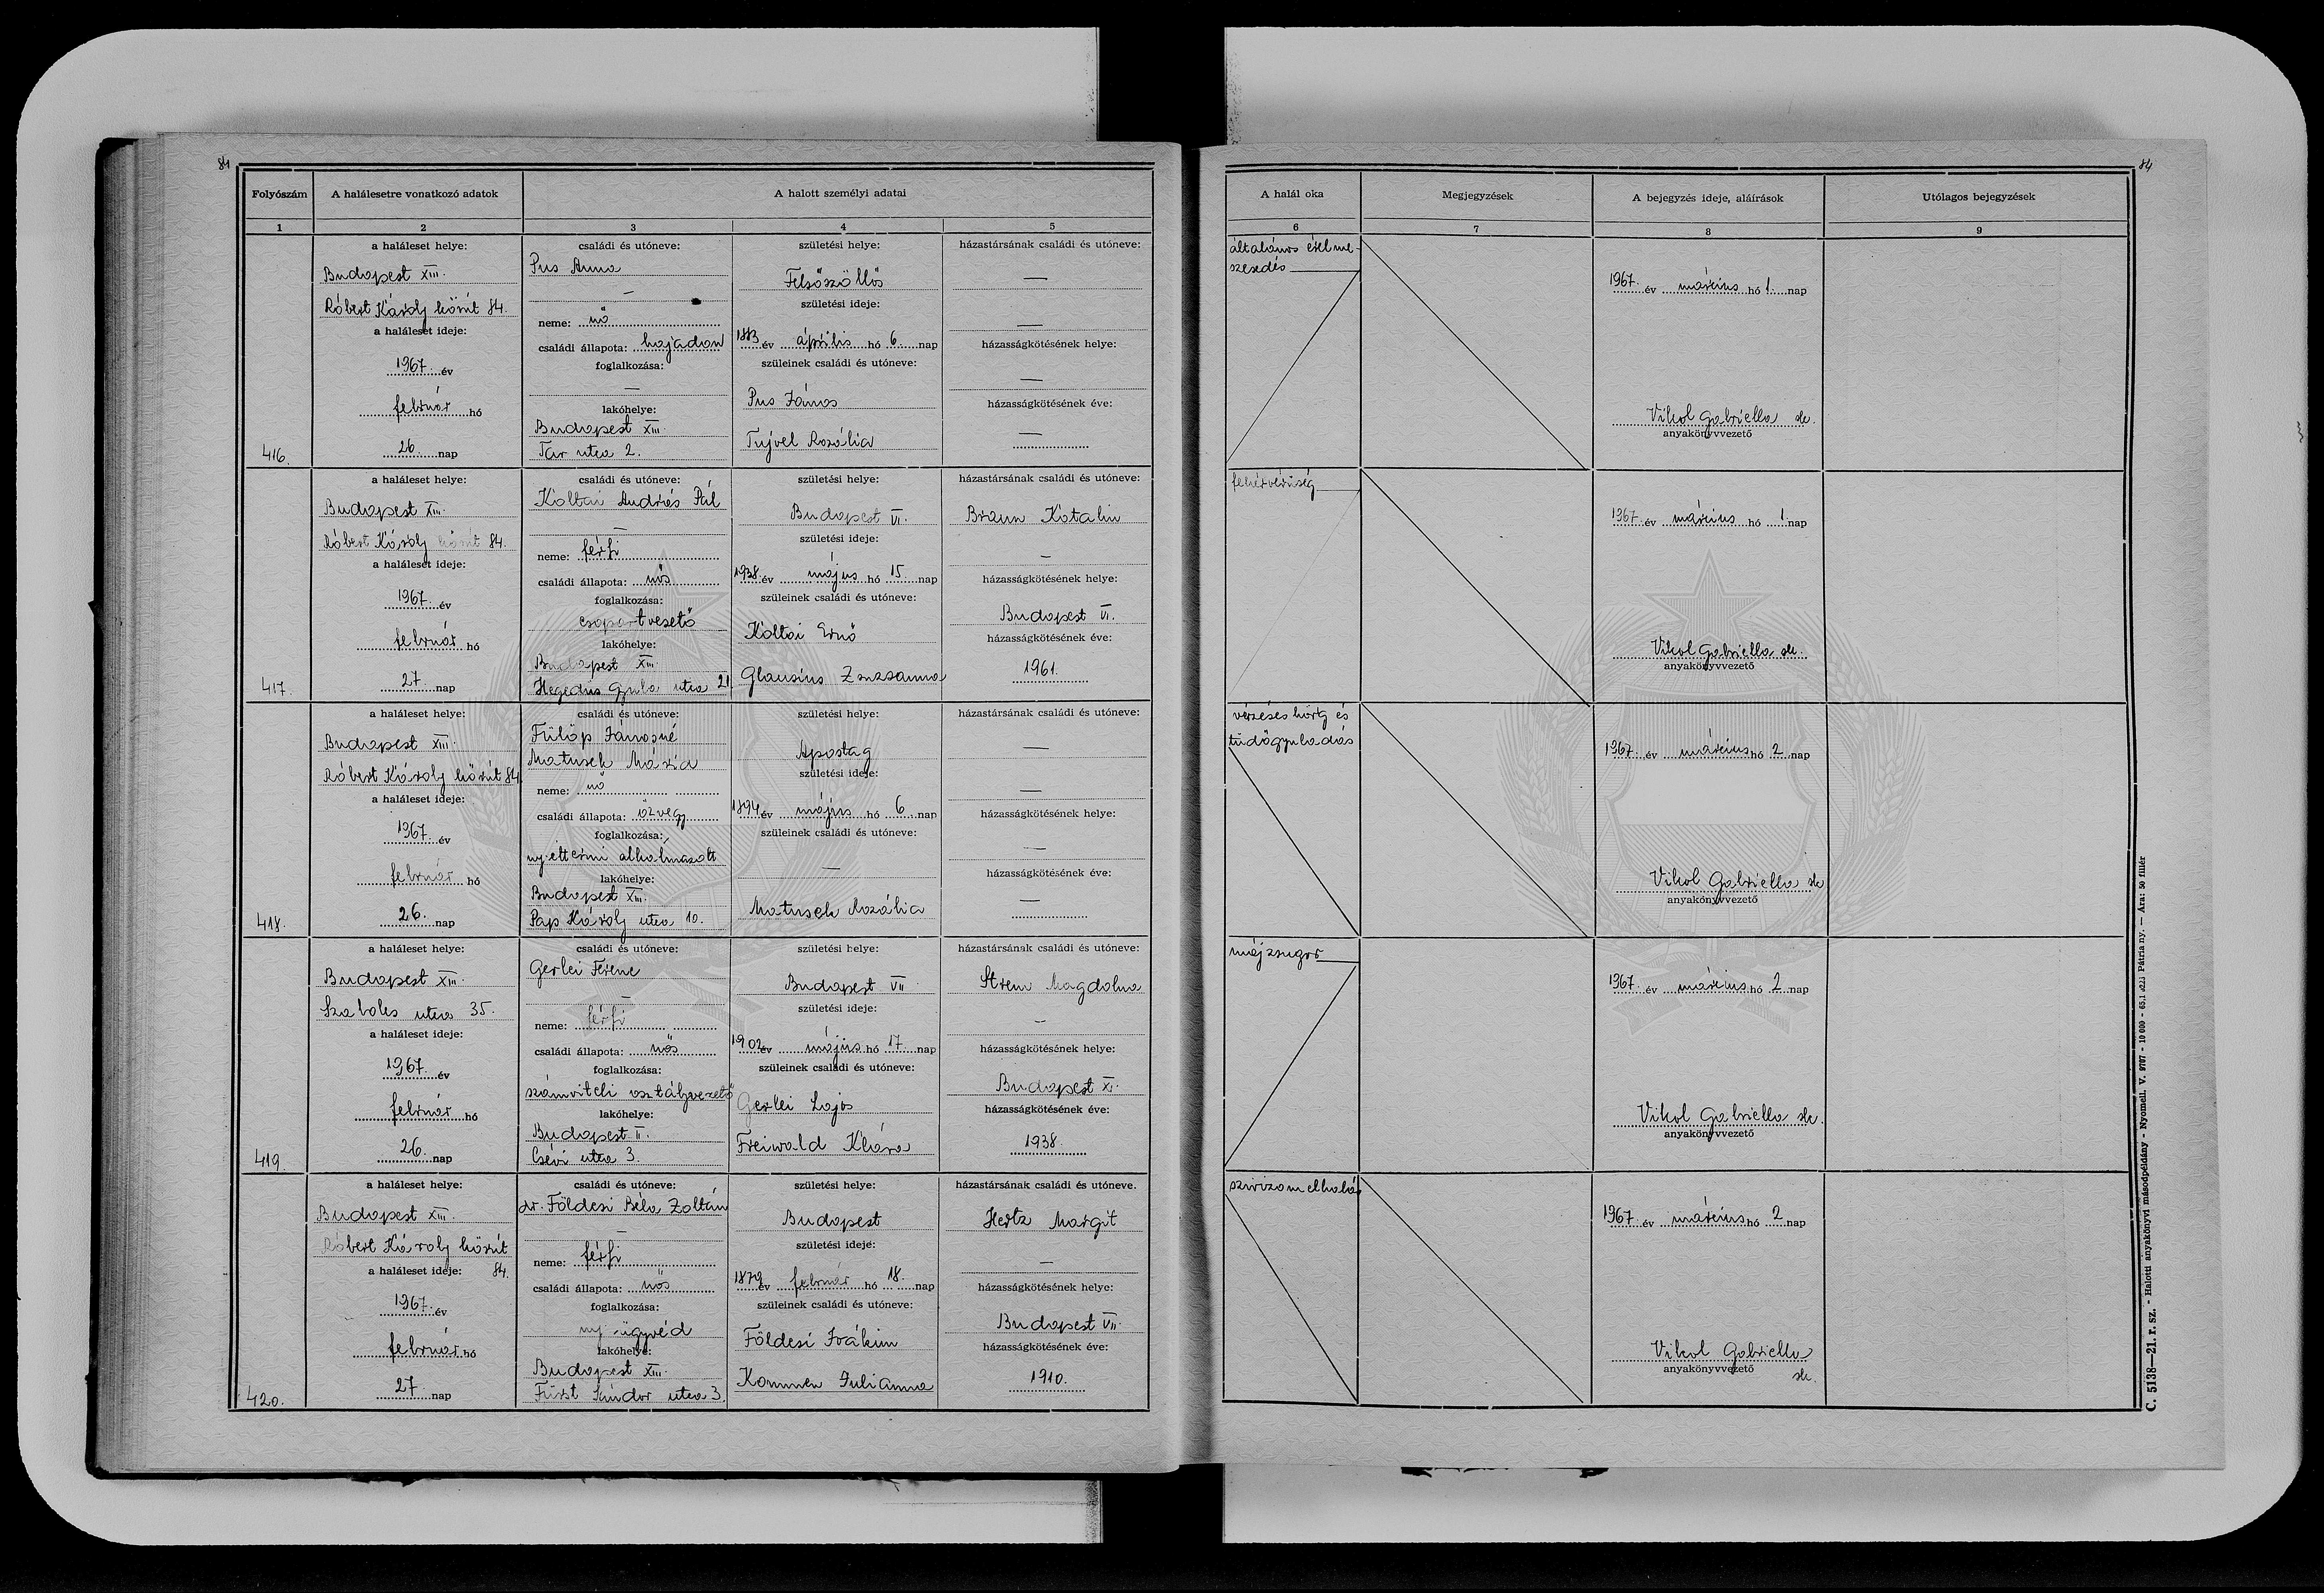 84
Folyószám
A halálesetre vonatkozó adatok
A halott személyi adatai
1
2
3
4
5
a haláleset helye:
Budapest XIII.
Róbert Károly körút 84.
a haláleset ideje:
1967. év
február hó
26. nap
416.
családi és utóneve:
Pus Anna
—
neme: nő
családi állapota: hajadon
foglalkozása:
—
lakóhelye:
Budapest XIII.
Tar utca 2.
születési helye:
Felsőszöllős
születési ideje:
1883 év április hó 6. nap
szüleinek családi és utóneve:
Pus János
Tujvel Rozália
házastársának családi és utóneve:
—
—
házasságkötésének helye:
—
házasságkötésének éve:
—
a haláleset helye:
Budapest XIII.
Róbert Károly körút 84.
a haláleset ideje:
1967. év
február hó
27. nap
417.
családi és utóneve:
Koltai András Pál
—
neme: férfi
családi állapota: nős
foglalkozása:
csoportvezető
lakóhelye:
Budapest XIII.
Hegedüs Gyula utca 21
születési helye:
Budapest VI.
születési ideje:
1938. év május hó 15. nap
szüleinek családi és utóneve:
Koltai Ernő
Glausius Zsuzsanna
házastársának családi és utóneve:
Braun Katalin
—
házasságkötésének helye:
Budapest VI.
házasságkötésének éve:
1961.
a haláleset helye:
Budapest XIII.
Róbert Károly körút 84.
a haláleset ideje:
1967. év
február hó
26. nap
418.
családi és utóneve:
Fülöp Jánosné
Matusek Mária
neme: nő
családi állapota: özvegy
foglalkozása:
ny. éttermi alkalmazott
lakóhelye:
Budapest XIII.
Pap Károly utca 10.
születési helye:
Apostag
születési ideje:
1894 év május hó 6 nap
szüleinek családi és utóneve:
—
Matusek Rozália
házastársának családi és utóneve:
—
—
házasságkötésének helye:
—
házasságkötésének éve:
—
a haláleset helye:
Budapest XIII.
Szabolcs utca 35.
a haláleset ideje:
1967. év
február hó
26. nap
419.
családi és utóneve:
Gerlei Ferenc
—
neme: férfi
családi állapota: nős
foglalkozása:
számviteli osztályvezető
lakóhelye:
Budapest II.
Csévi utca 3.
születési helye:
Budapest VII.
születési ideje:
1902 év május hó 17. nap
szüleinek családi és utóneve:
Gerlei Lajos
Freiwald Klára
házastársának családi és utóneve:
Strem Magdolna
—
házasságkötésének helye:
Budapest XI.
házasságkötésének éve:
1938.
a haláleset helye:
Budapest XIII.
Róbert Károly körút
a haláleset ideje: 84.
1967. év
február hó
27. nap
420.
családi és utóneve:
dr. Földesi Béla Zoltán
—
neme: férfi
családi állapota: nős
foglalkozása:
ny. ügyvéd
lakóhelye:
Budapest XIII.
Fürst Sándor utca 3.
születési helye:
Budapest
születési ideje:
1879 év február hó 18. nap
szüleinek családi és utóneve:
Földesi Joákim
Kommen Julianna
házastársának családi és utóneve.
Hertz Margit
—
házasságkötésének helye:
Budapest VII.
házasságkötésének éve:
1910.
84
A halál oka
Megjegyzések
A bejegyzés ideje, aláírások
Utólagos bejegyzések
6
7
8
9
általános érelme-
szesedés
1967. év március hó 1. nap
Vikol Gabriella sk.
anyakönyvvezető
fehérvérűség
1967. év március hó 1. nap
Vikol Gabriella sk.
anyakönyvvezető
vérzéses hörg és
tüdőgyuladás
1967. év március hó 2. nap
Vikol Gabriella sk
anyakönyvvezető
májzsugor
1967. év március hó 2 nap
Vikol Gabriella sk.
anyakönyvvezető
szivizomelhalás
1967 év március hó 2 nap
Vikol Gabriella
anyakönyvvezető
sk.
C. 5138—21. r. sz. - Halotti anyakönyvi másodpéldány - Nyomell. V. 977 - 10 000 - Pátria ny. — Ára: 50 fillér